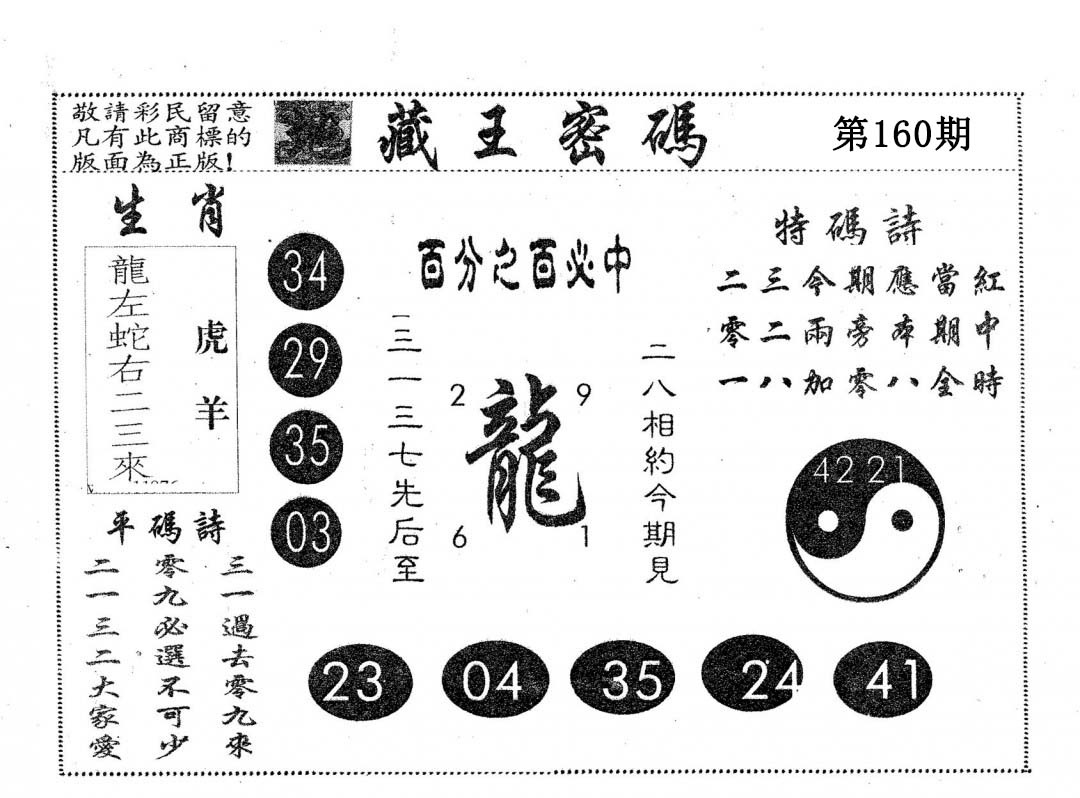 敬請彩民留意
凡有此商標的
版面為正版!
藏王密碼
第160期
生肖
龍左蛇右二三來
虎羊
34
29
35
03
百分之百必中
三一三七先后至
2 9
龍
6 1
二八相約今期見
特碼詩
二三今期應當紅
零二兩旁本期中
一八加零八全時
42 21
平碼詩
三一過去零九來
零九必選不可少
二一三二大家愛
23 04 35 24 41